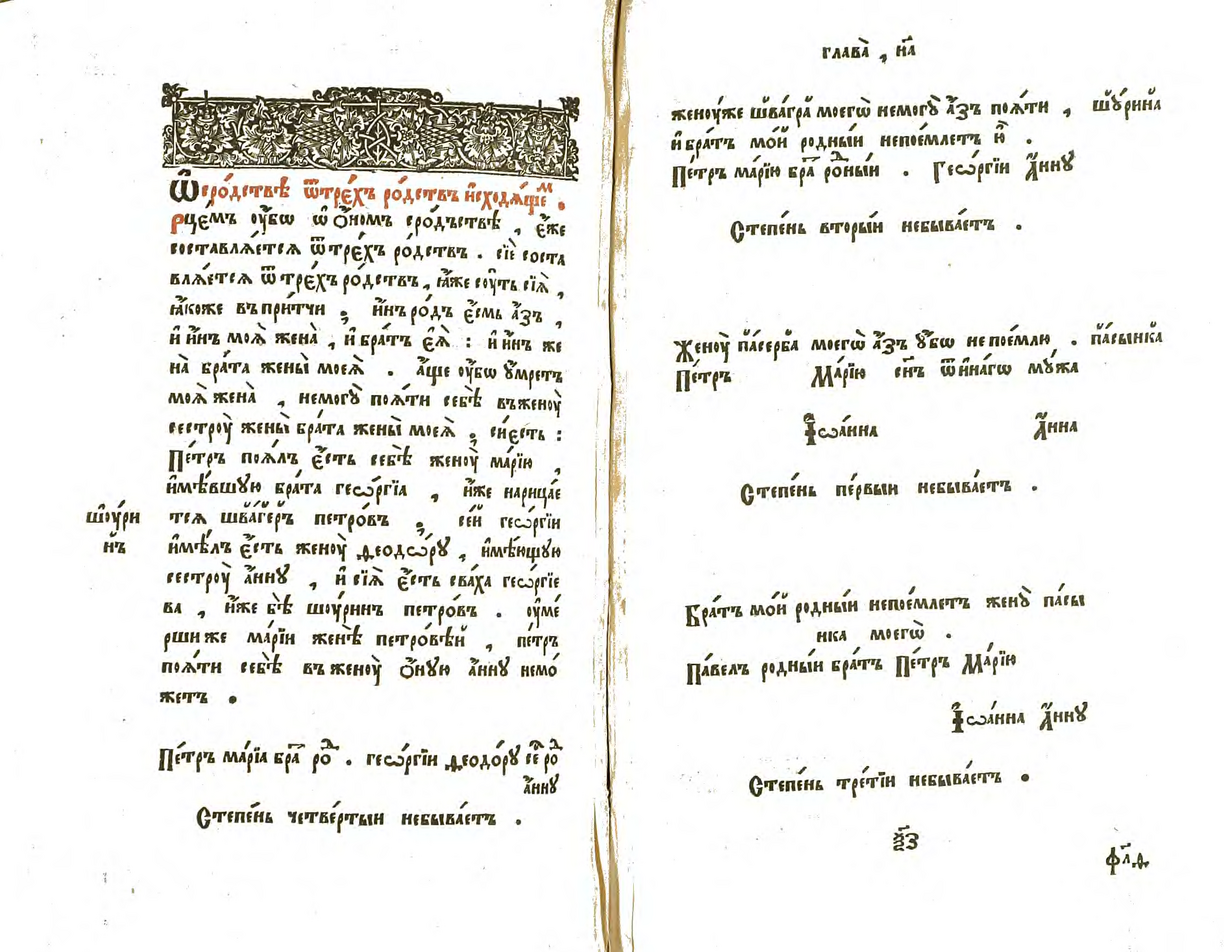 Ѡ сро́дствѣ ѿ тре́хъ ро́дствъ и҆сходѧ́щемъ .
Рце́мъ ᲂу҆́бѡ ѡ҆ ѻ҆́номъ сро́дъствѣ , є҆́же
составлѧ́етсѧ ѿ тре́хъ ро́дствъ . сїѐ соста
влѧ́етсѧ ѿ тре́хъ ро́дствъ , ꙗ҆́же сꙋ́ть сїѧ̀ ,
ꙗ҆́коже въ при́тчи ; и҆́нъ ро́дъ є҆́смь а҆́зъ ,
и҆ и҆́нъ моѧ̀ жена̀ , и҆ бра́тъ є҆ѧ̀ : и҆ и҆́нъ же
на̀ бра́та жены̀ моеѧ̀ . а҆́ще ᲂу҆́бѡ ᲂу҆́мретъ
моѧ̀ жена̀ , немогꙋ̀ поѧ́ти себѣ̀ въ женоу̀
сестроу̀ жены̀ бра́та жены̀ моеѧ̀ , сі́есть :
Пе́тръ поѧ́лъ є҆́сть себѣ̀ женоу̀ марі́ю ,
и҆мѣ́вшꙋю бра́та геѡ́ргїа , и҆́же нарицае́
тсѧ шва́геръ петро́въ , се́й геѡ́ргїи
шоу́ри
нъ
и҆мѣ́лъ є҆́сть женоу̀ ѳеодѡ́рꙋ , и҆мѣ́ющꙋю
сестроу̀ а҆́ннꙋ , и҆ сїѧ̀ є҆́сть сва́ха геѡ́ргїе
ва , и҆́же бѣ̀ шоу́ринъ петро́въ . оуме́
рши же марі́и женѣ̀ петро́вѣй , пе́тръ
поѧ́ти себѣ̀ въ женоу̀ ѻ҆́нꙋю а҆́ннꙋ немо́
жетъ .
Пе́тръ марі́а бра ро . геѡ́ргїи ѳеодо́рꙋ се ро
а҆́ннꙋ
Степе́нь четве́ртыи небыва́етъ .
глава̀ , н҃а
женоу́же шва́гра моегѡ̀ немогꙋ̀ а҆́зъ поѧ́ти , шꙋ́рина
и҆ бра́тъ мо́й ро́дныи непое́млетъ ю҆̀ .
Пе́тръ марі́ю бра ро́ныи . Геѡ́ргїи А҆́ннꙋ
Степе́нь вторы́и небыва́етъ .
Женоу̀ па́серба моегѡ̀ а҆́зъ ᲂу҆́бѡ не пое́млю . па́сынка
Пе́тръ Марі́ю сн҃ъ ѿ и҆на́гѡ мꙋ́жа
І҆ѡа́нна А҆́нна
Степе́нь пе́рвыи небыва́етъ .
Бра́тъ мо́й ро́дныи непое́млетъ женꙋ̀ па́сы
нка моегѡ̀ .
Па́велъ ро́дныи бра́тъ Пе́тръ Марі́ю
І҆ѡа́нна А҆́ннꙋ
Степе́нь тре́тїи небыва́етъ .
ѯ҃з
фл҃ѳ